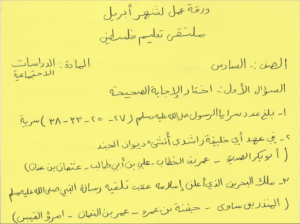 ورقة عمل لشهر أبريل
ملتقى تعليم فلسطيني
الصف :- السادس المادة : الدراسات الاجتماعية
السؤال الأول :- اختار الإجابة الصحيحة
١- بلغ عدد سرايا الرسول صلى الله عليه وسلم ( ٢٧ - ٢٥ - ٣٣ - ٣٨ ) سرية
٢- في عهد أي خليفة راشدي أنشئ ديوان الجند
( أبو بكر الصديق - عمر بن الخطاب - علي بن أبي طالب - عثمان بن عفان )
٣- ملك البحرين الذي أعلن إسلامه عقب تلقيه رسالة النبي صلى الله عليه وسلم
( المنذر بن ساوى - جفنة بن عمرو - عمر بن النعمان - امرؤ القيس )